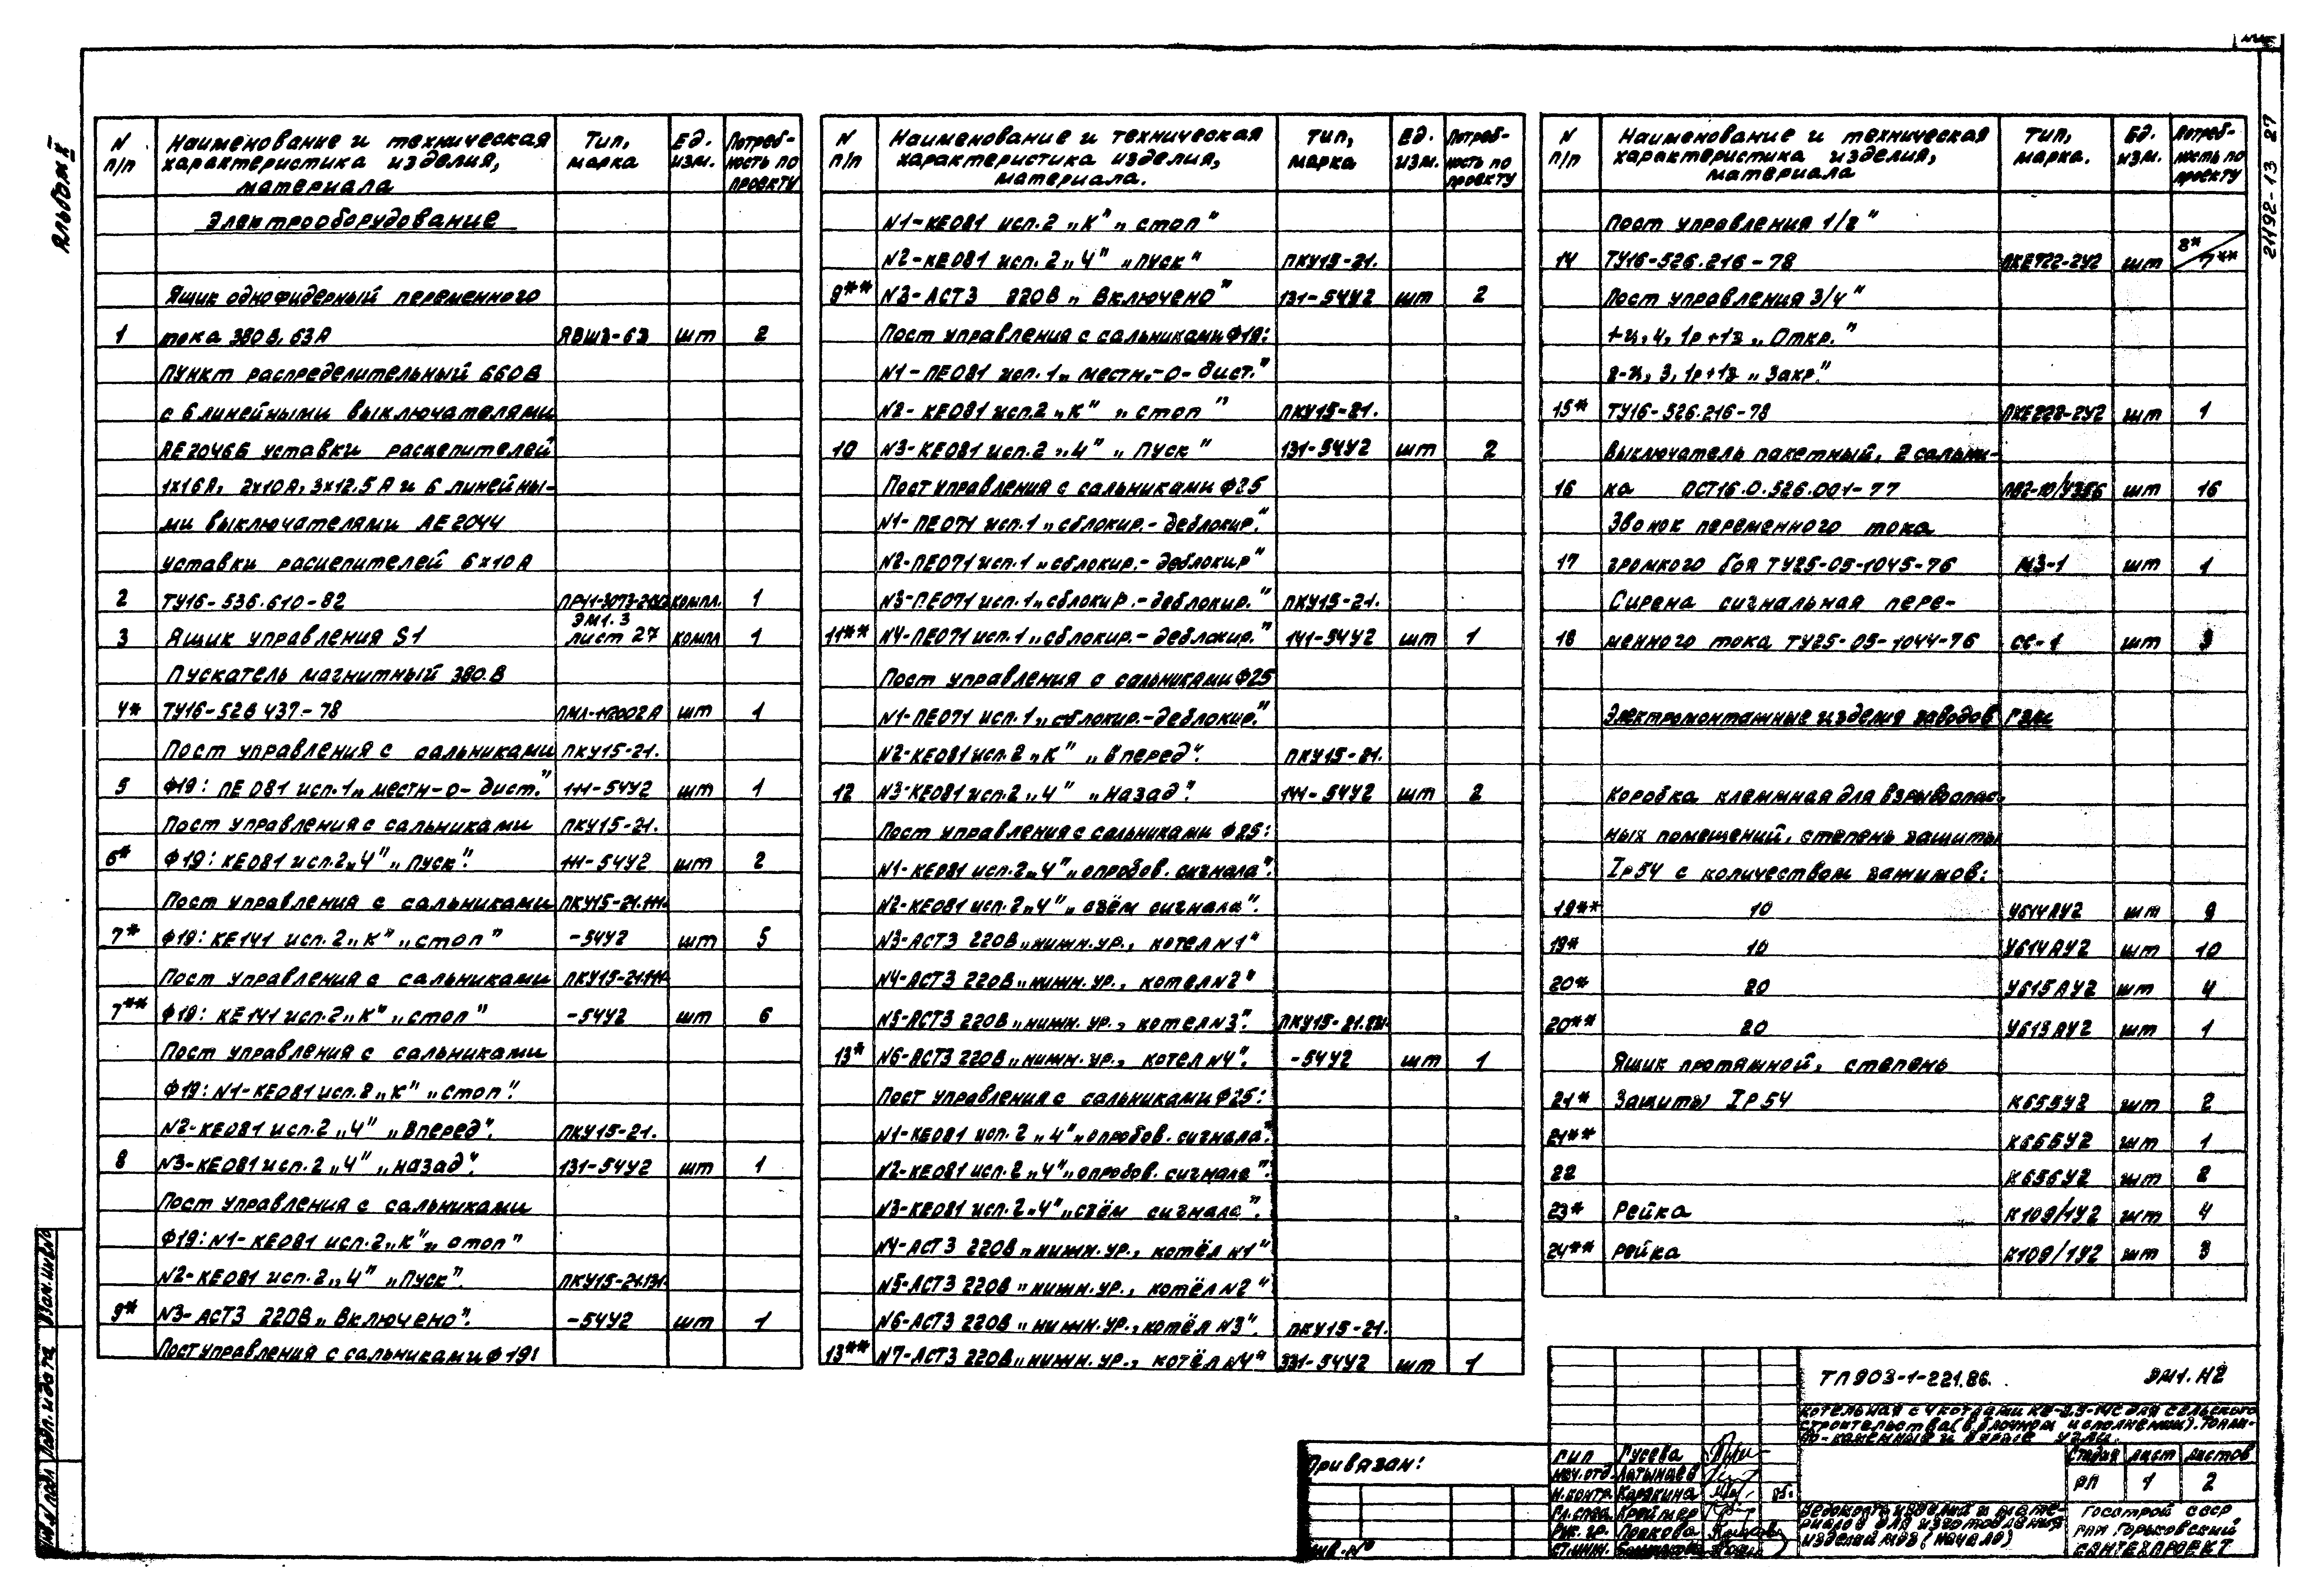 Альбом X
21192-13 27
N п/п
Наименование и техническая характеристика изделия, материала
Тип, марка
Ед. изм.
Потреб-ность по проекту
Электрооборудование
Ящик однофидерный переменного
1 тока 380В, 63А ЯВШ3-63 шт 2
Пункт распределительный 660В
с 6 линейными выключателями
АЕ2046Б уставки расцепителей
1х16А, 2х10А, 3х12.5А и 6 линейны-
ми выключателями АЕ2044
уставки расцепителей 6х10А
2 ТУ16-536.610-82 компл. 1
ЭМ1.3
3 Ящик управления S1 лист 27 компл 1
Пускатель магнитный 380.В
4* ТУ16-526 437-78 шт 1
Пост управления с сальниками ПКУ15-21.
5 Ф19: ПЕ081 исп.1„местн-о-дист." 111-54У2 шт 1
Пост управления с сальниками ПКУ15-21.
6* Ф19: КЕ081 исп.2„Ч" „Пуск". 111-54У2 шт 2
Пост управления с сальниками ПКУ15-21.111-
7* Ф19: КЕ141 исп.2„К" „стоп" -54У2 шт 5
Пост управления с сальниками ПКУ15-21.111-
7** Ф19: КЕ141 исп.2„К" „стоп" -54У2 шт 6
Пост управления с сальниками
Ф19: N1-КЕ081 исп.2„К" „Стоп".
N2-КЕ081 исп.2„Ч" „Вперед". ПКУ15-21.
8 N3-КЕ081 исп.2„Ч" „назад". 131-54У2 шт 1
Пост управления с сальниками
Ф19: N1-КЕ081 исп.2„К"„стоп"
N2-КЕ081 исп.2„Ч" „Пуск". ПКУ15-21.131-
9* N3-АСТ3 220В„Включено". -54У2 шт 1
Пост управления с сальниками Ф19:
N п/п
Наименование и техническая характеристика изделия, материала.
Тип, марка
Ед. изм.
Потреб-ность по проекту
N1-КЕ081 исп.2„К"„стоп"
N2-КЕ081 исп.2„Ч" „пуск" ПКУ15-21.
9** N3-АСТ3 220В„Включено" 131-54У2 шт 2
Пост управления с сальниками Ф19:
N1-ПЕ081 исп.1„местн.-о-дист."
N2-КЕ081 исп.2„К" „стоп" ПКУ15-21.
10 N3-КЕ081 исп.2„Ч" „Пуск" 131-54У2 шт 2
Пост управления с сальниками Ф25
N1-ПЕ071 исп.1„сблокир.-деблокир."
N2-ПЕ071 исп.1„сблокир.-деблокир"
N3-ПЕ071 исп.1„сблокир.-деблокир." ПКУ15-21.
11** N4-ПЕ071 исп.1„сблокир.-деблокир." 141-54У2 шт 1
Пост управления с сальниками Ф25
N1-ПЕ071 исп.1„сблокир.-деблокир."
N2-КЕ081 исп.2„К" „вперед". ПКУ15-21.
12 N3-КЕ081 исп.2„Ч" „назад". 141-54У2 шт 2
Пост управления с сальниками Ф25:
N1-КЕ081 исп.2„Ч"„опробов. сигнала".
N2-КЕ081 исп.2„Ч"„съём сигнала".
N3-АСТ3 220В„нижн.ур., котел N1"
N4-АСТ3 220В„нижн.ур., котел N2"
N5-АСТ3 220В„нижн.ур., котел N3".
13* N6-АСТ3 220В„нижн.ур., котел N4". -54У2 шт 1
Пост управления с сальниками Ф25:
N1-КЕ081 исп.2„Ч"„опробов. сигнала".
N2-КЕ081 исп.2„Ч"„опробов. сигнала".
N3-КЕ081 исп.2„Ч"„съём сигнала".
N4-АСТ3 220В„нижн.ур., котёл N1"
N5-АСТ3 220В„нижн.ур., котёл N2"
N6-АСТ3 220В„нижн.ур., котёл N3". ПКУ15-21.
13** N7-АСТ3 220В„нижн.ур., котёл N4" 331-54У2 шт 1
N п/п
Наименование и техническая характеристика изделия, материала
Тип, марка.
Ед. изм.
Потреб-ность по проекту
Пост управления 1/2"
14 ТУ16-526.216-78 ПКЕ722-2У2 шт 8*/7**
Пост управления 3/4"
1-ц, Ч, 1р+1з „Откр."
2-ц, 3, 1р+1з „Закр."
15* ТУ16-526.216-78 шт 1
Выключатель пакетный, 2 сальни-
16 ка ОСТ16.0.526.001-77 шт 16
Звонок переменного тока
17 громкого боя ТУ25-05-1045-76 МЗ-1 шт 1
Сирена сигнальная пере-
18 менного тока ТУ25-05-1044-76 СС-1 шт 3
Электромонтажные изделия заводов ГЭМ
Коробка клеммная для взрывоопас-
ных помещений, степень защиты
Ip54 с количеством зажимов:
19** 10 У614АУ2 шт 9
19* 10 У614АУ2 шт 10
20* 20 У615АУ2 шт 4
20** 20 У615АУ2 шт 1
Ящик протяжной, степень
21* Защиты IP54 К655У2 шт 2
21** шт 1
22 К656У2 шт 2
23* Рейка К109/1У2 шт 4
24** Рейка К109/1У2 шт 3
ТП 903-1-221.86. ЭМ1.Н2
Котельная с 4 котлами для сельского
строительства (в блочном исполнении). Топли-
во-каменные и бурые угли.
Привязан:
Инв.N°
ГИП Гусева
Нач.отд. Латынцев
Н.контр. Корякина 85.
Гл.спец. Крейтер
Рук.гр.
Ст.инж.
Стадия Лист Листов
РП 1 2
Ведомость изделий и мате-
риалов для изготовления
изделий МЭЗ (начало)
Госстрой СССР
ГПИ Горьковский
САНТЕХПРОЕКТ
Взам.инв.N
Подп. и дата
Инв.N подл